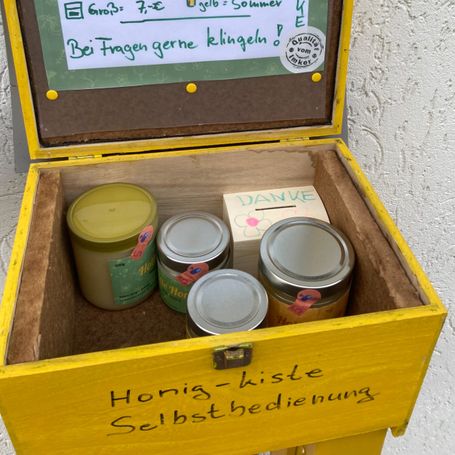 Groß = 7,-€ gelb = Sommer
Bei Fragen gerne klingeln!
Qualität vom Imker
DANKE
Honig-kiste
Selbstbedienung